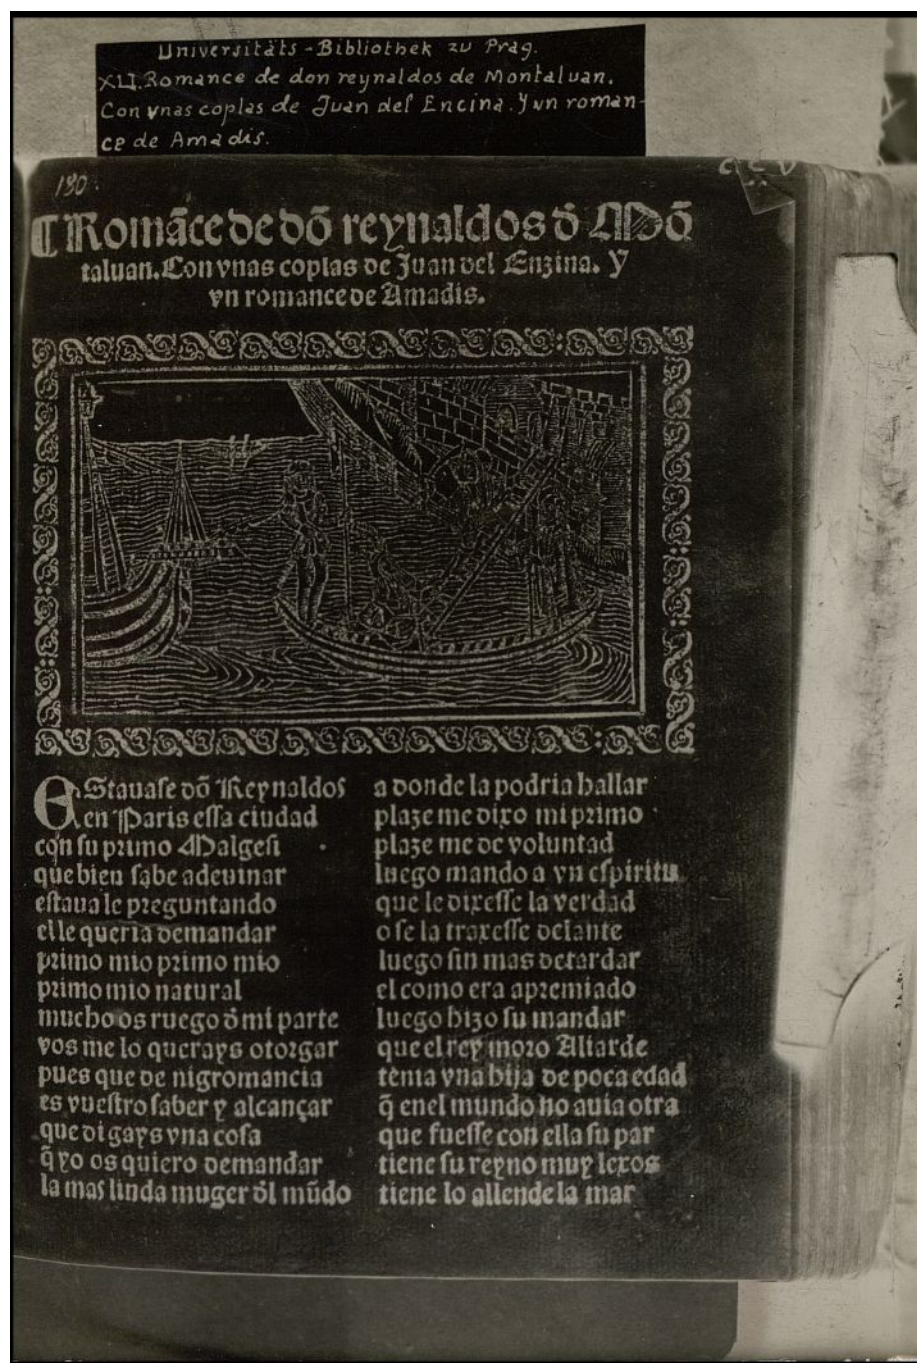 Universitäts-Bibliothek zu Prag.
XLI. Romance de don reynaldos de Montaluan.
Con ynas coplas de Juan del Encina. Y un roman-
ce de Amadis.
180.
¶ Romãce de dõ reynaldos đ Mõ
taluan. Con vnas coplas de Juan del Enzina. Y
vn romance de Amadis.
EStauase dõ Reynaldos
en Paris essa ciudad
con su primo Malgesi
que bien sabe adeuinar
estaua le preguntando
el le queria demandar
primo mio primo mio
primo mio natural
mucho os ruego đ mi parte
vos me lo querays otorgar
pues que de nigromancia
es vuestro saber y alcançar
que digays vna cosa
q̃ yo os quiero demandar
la mas linda muger đl mũdo
a donde la podria hallar
plaze me dixo mi primo
plaze me de voluntad
luego mando a vn espiritu
que le dixesse la verdad
o se la traxesse delante
luego sin mas detardar
el como era apremiado
luego hizo su mandar
que el rey moro Aliarde
tenia vna hija de poca edad
q̃ enel mundo no auia otra
que fuesse con ella su par
tiene su reyno muy lexos
tiene lo allende la mar